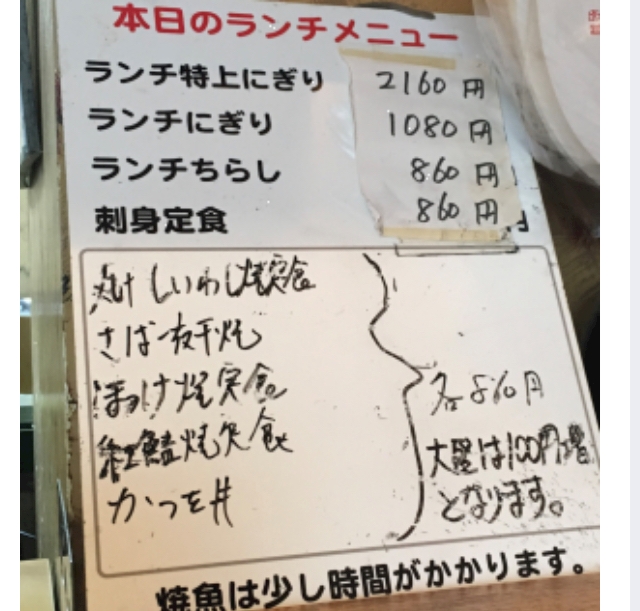 本日のランチメニュー
ランチ特上にぎり 2160円
ランチにぎり 1080円
ランチちらし 860円
刺身定食 860円
いわし焼定食
さば 干焼
ほっけ焼定食
紅鮭焼定食
かつを丼
各860円
大盛は100円増
となります。
焼魚は少し時間がかかります。